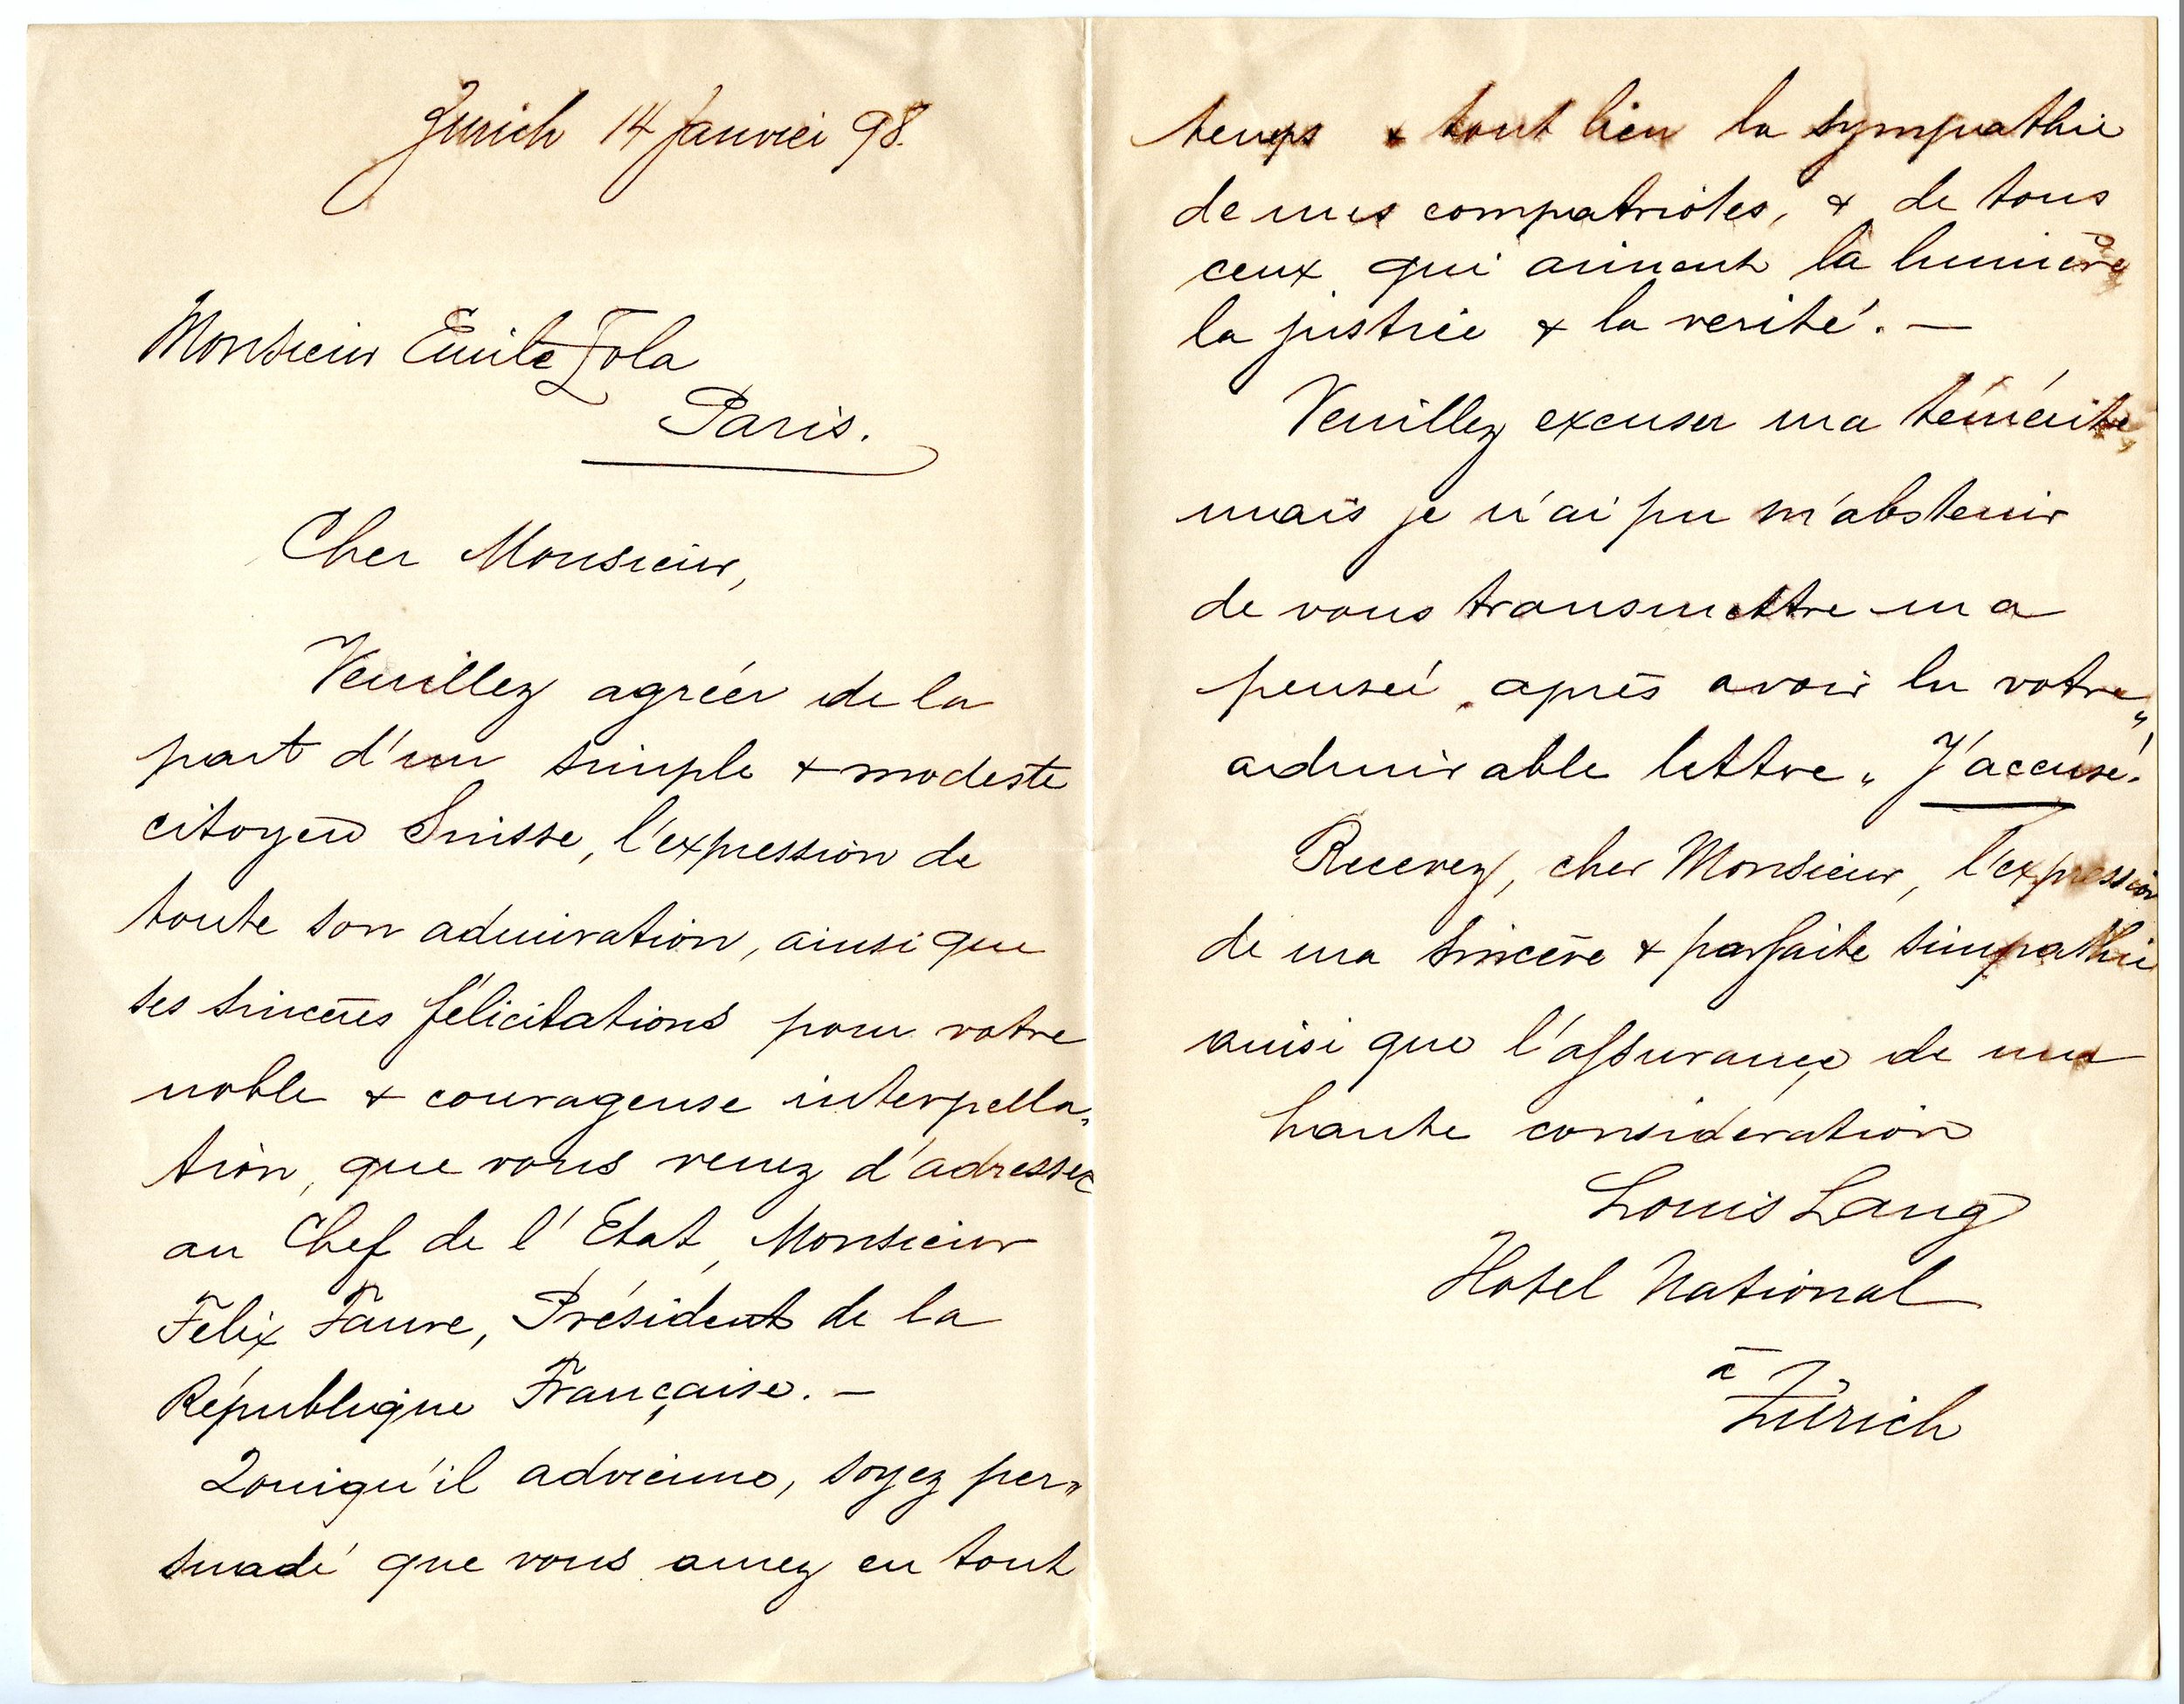 Zurich 14 Janvier 98.
Monsieur Emile Zola
Paris.
Cher Monsieur,
Veuillez agréer de la
part d'un simple & modeste
citoyen Suisse, l'expression de
toute son admiration, ainsi que
ses sincères félicitations pour votre
noble & courageuse interpella„
tion, que vous venez d'adresser
au Chef de l'Etat, Monsieur
Felix Faure, Président de la
République Française. —
Qouiqu'il advienne, soyez per„
suadé que vous aurez en tout
temps & tout lieu la sympathie
de mes compatriotes, & de tous
ceux qui aiment la lumière
la justice & la verité. —
Veuillez excuser ma témérité,
mais je n'ai pu m'abstenir
de vous transmettre ma
pensée, après avoir lu votre
admirable lettre „J'accuse."
Recevez, cher Monsieur, l'expression
de ma sincère & parfaite simpathie
ainsi que l'assurance de ma
haute considération
Louis Lang
Hotel National
à
Zürich